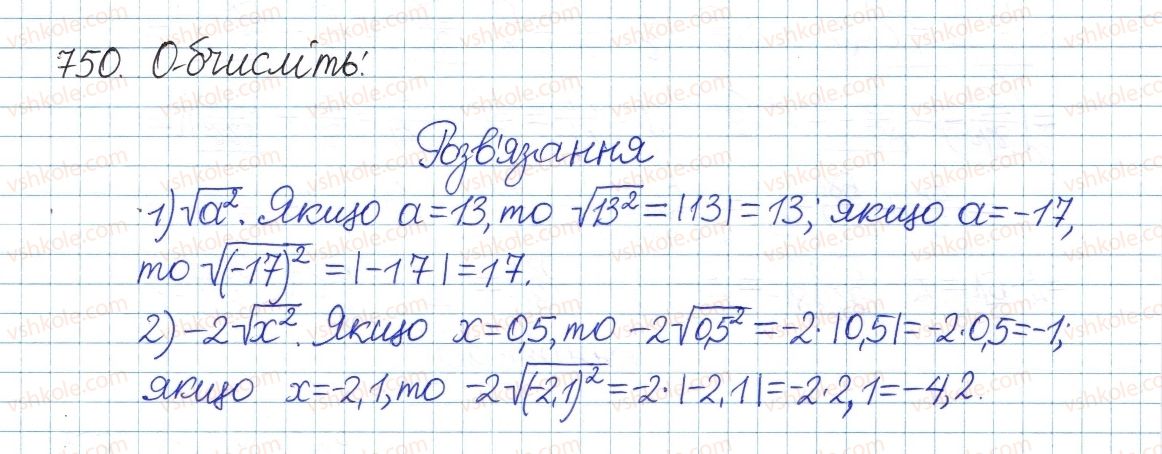 750. Обчисліть:
Розв'язання
1) √a². Якщо a=13, то √13² = |13| = 13; якщо a=-17,
то √(-17)² = |-17| = 17.
2) -2√x². Якщо x=0,5, то -2√0,5² = -2·|0,5| = -2·0,5=-1;
якщо x=-2,1, то -2√(-2,1)² = -2·|-2,1| = -2·2,1=-4,2.